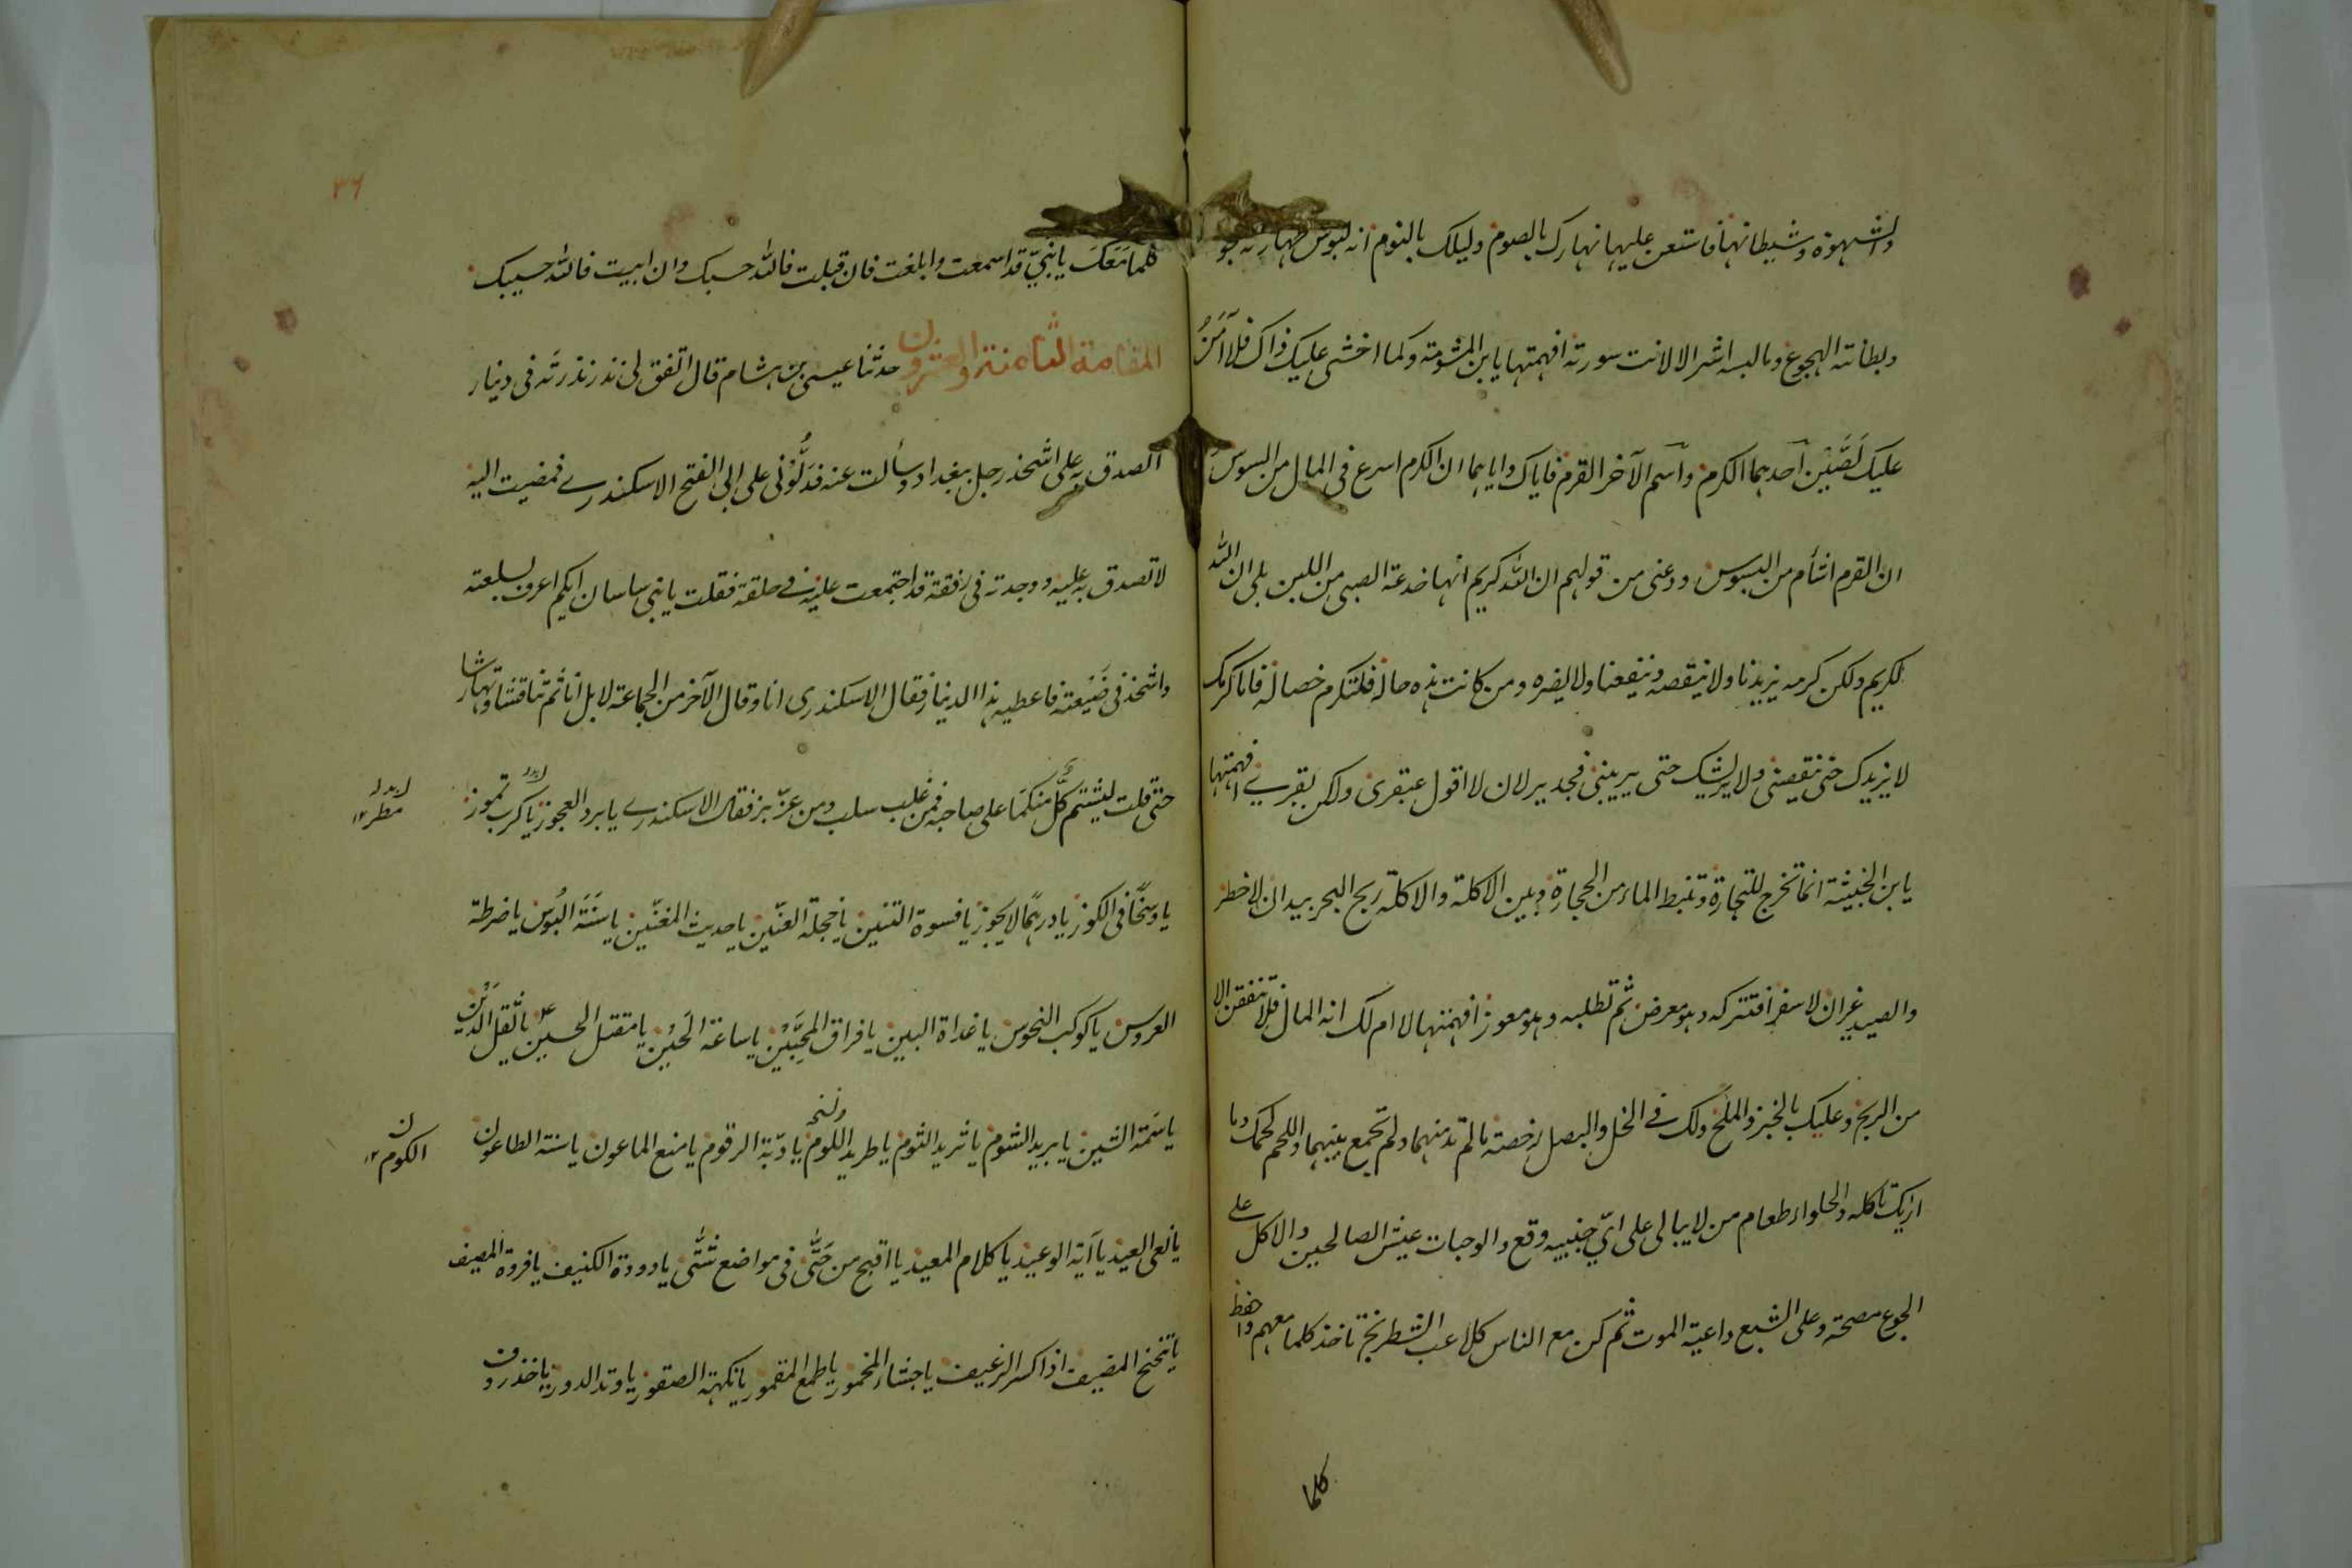 والشهوة وشيطانها فاستعن عليها نهارك بالصوم وليلك بالنوم انه لبوس ظهارته الجوع
وبطانته الهجوع وما لبسه اشر الا لانت سورته افهمتها يا بن المشومة وكما اخشى عليك ذاك فلا آمَنُ
عليك لَصَّيْن احدهما الكرم واسم الآخر القرم فاياك واياهما ان الكرم اسرع فى المال من السوس
ان القرم اشأم من البسوس ودعنى من قولهم ان الله كريم انها خدعة الصبى من اللبن بلى ان الله
لكريم ولكن كرمه يزيدنا ولا ينقصه وينفعنا ولا يضره ومن كانت هذه حاله فلتكرم خصاله فاما كرمك
لا يزيدك حتى ينقصنى ولا يريشك حتى يبرينى فجدير لان لا اقول عبقرى ولكن بقرى افهمتها
يا بن الخبيثة انما تخرج للتجارة وتنبط الماء من الحجارة وبين الاكلة والاكلة ريح البحر بيد ان لا خطر
والصيد غير ان لا سفر افتتركه وهو معرض ثم تطلبه وهو معوز افهمتها لا ام لك انه المال فلا تنفقن الا
من الربح وعليك بالخبز والملح ولك فى الخل والبصل رخصة ما لم تدمنهما ولم تجمع بينهما واللحم لحمك وما
اريك تاكله والحلواء طعام من لا يبالى على اىّ جنبيه وقع والوجبات عيش الصالحين والاكل على
الجوع مصحة وعلى الشبع داعية الموت ثم كن مع الناس كلاعب الشطرنج تاخذ كلما معهم واحفظ
كلما
٣٦
كلما مَعَكَ يا بُنَيّ قد اسمعت وابلغت فان قبلت فالله حسبك وان ابيت فالله حسيبك
المقامة الثامنة والعشرون حدثنا عيسى بن هشام قال اتفق لى نذر نذرته فى دينار
اتصدق به على اشحذ رجل ببغداد وسألت عنه فدَلُّوْنى على ابى الفتح الاسكندرى فمضيت اليه
لاتصدق به عليه ووجدته فى رفقة قد اجتمعت عليه فى حلقة فقلت يا بنى ساسان ايكم اعرف بسلعته
واشحذ فى صَنِيْعته فاعطيه هذا الدينار فقال الاسكندرى انا وقال الآخر من الجماعة لا بل انا ثم تناقشا وتهارشا
حتى قلت ليشتم كلّ منكما على صاحبه فمن غلب سلب ومن عزّ بز فقال الاسكندرى يا برد العجوز يا كرب تموز
مطر ١٢
يا وسخًا فى الكوز يا درهمًا لا يجوز يا فسوة التنين يا خجلة العنّين يا حديث المغنّين يا سَنَة البُوس يا ضرطة
العروس يا كوكب النحوس يا غداة البين يا فراق المُحِبَّيْن يا ساعة الحَيْن يا مقتل الحسين يا ثقل الدَيْن
يا سَمة الشين يا بريد الشوم يا ثريد الثوم يا طريد اللوم يا دبّة الرقوم يا منع الماعون يا سنة الطاعون
الكوم ١٢
يا نعى العيد يا آية الوعيد يا كلام المعيد يا اقبح من حَتّٰى فى مواضع شَتّٰى يا دودة الكنيف يا فروة المصيف
يا تنحنح المضيف اذا كسر الرغيف يا جشاء المخمور يا طمع المقمور يا نكهة الصقور يا وتد الدور يا خذروف